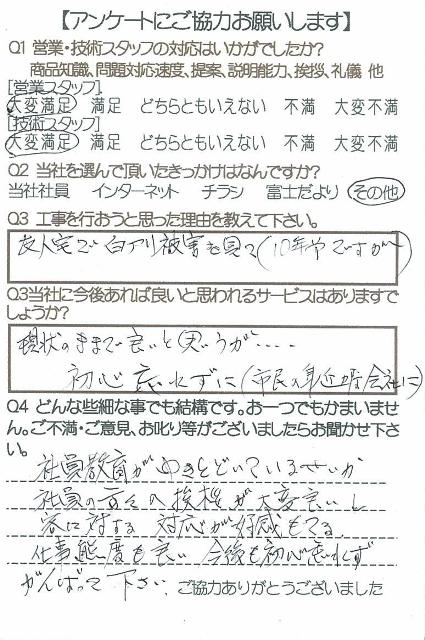 【アンケートにご協力お願いします】
Q1 営業・技術スタッフの対応はいかがでしたか?
商品知識、問題対応速度、提案、説明能力、挨拶、礼儀 他
[営業スタッフ]
大変満足 満足 どちらともいえない 不満 大変不満
[技術スタッフ]
大変満足 満足 どちらともいえない 不満 大変不満
Q2 当社を選んで頂いたきっかけはなんですか?
当社社員 インターネット チラシ 富士だより その他
Q3 工事を行おうと思った理由を教えて下さい。
友人宅で白アリ被害を見て(10年やですが)
Q3当社に今後あれば良いと思われるサービスはありますで
しょうか?
現状のままで良いと思うが‥‥
初心忘れずに(市民の身近な会社に)
Q4 どんな些細な事でも結構です。お一つでもかまいませ
ん。ご不満・ご意見、お叱り等がございましたらお聞かせ下さ
い。
社員教育がゆきとどいているせいか
社員の方々の挨拶が大変良いし
客に対する対応が好感もてる。
仕事態度も良い 今後も初心忘れず
がんばって下さい。ご協力ありがとうございました